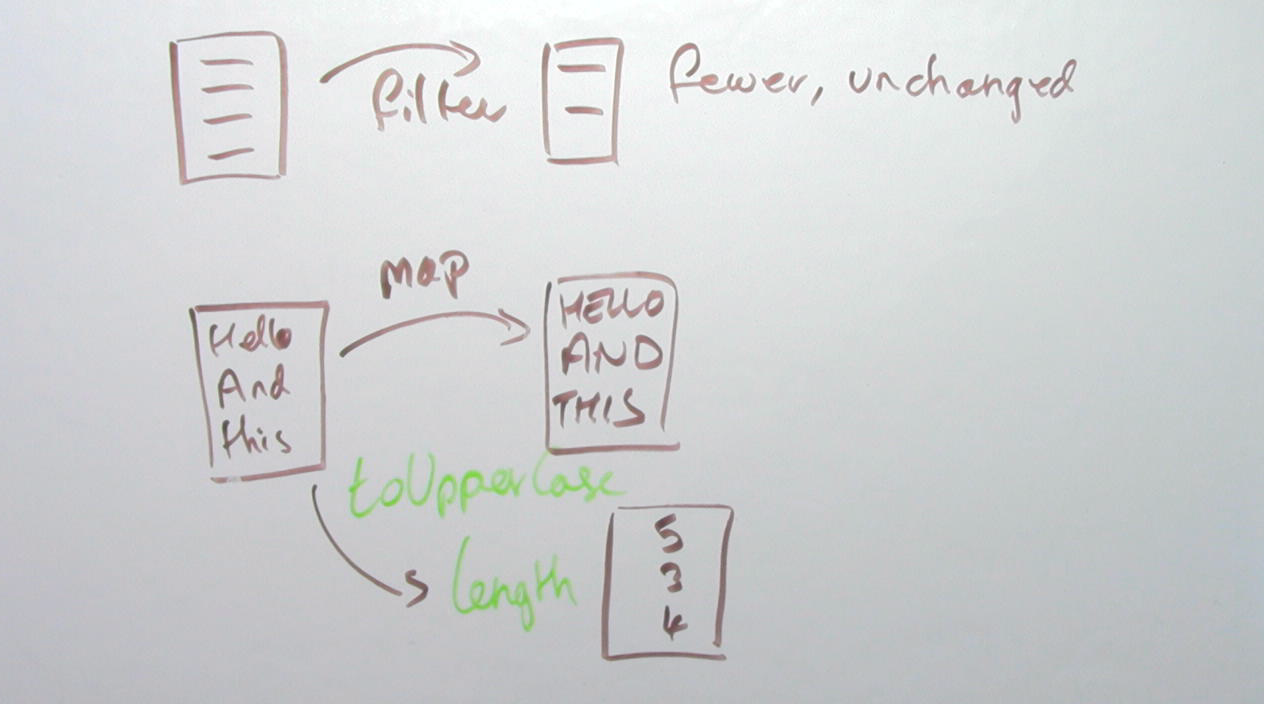 filter
fewer, unchanged
map
Hello
And
this
HELLO
AND
THIS
toUpperCase
length
5
3
4